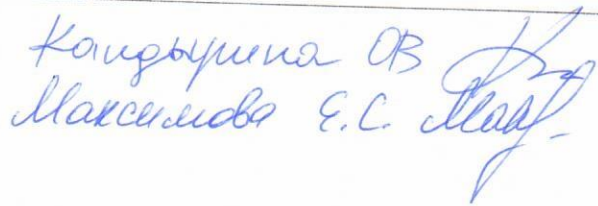 Кандырина ОВ
Максимова Е.С.